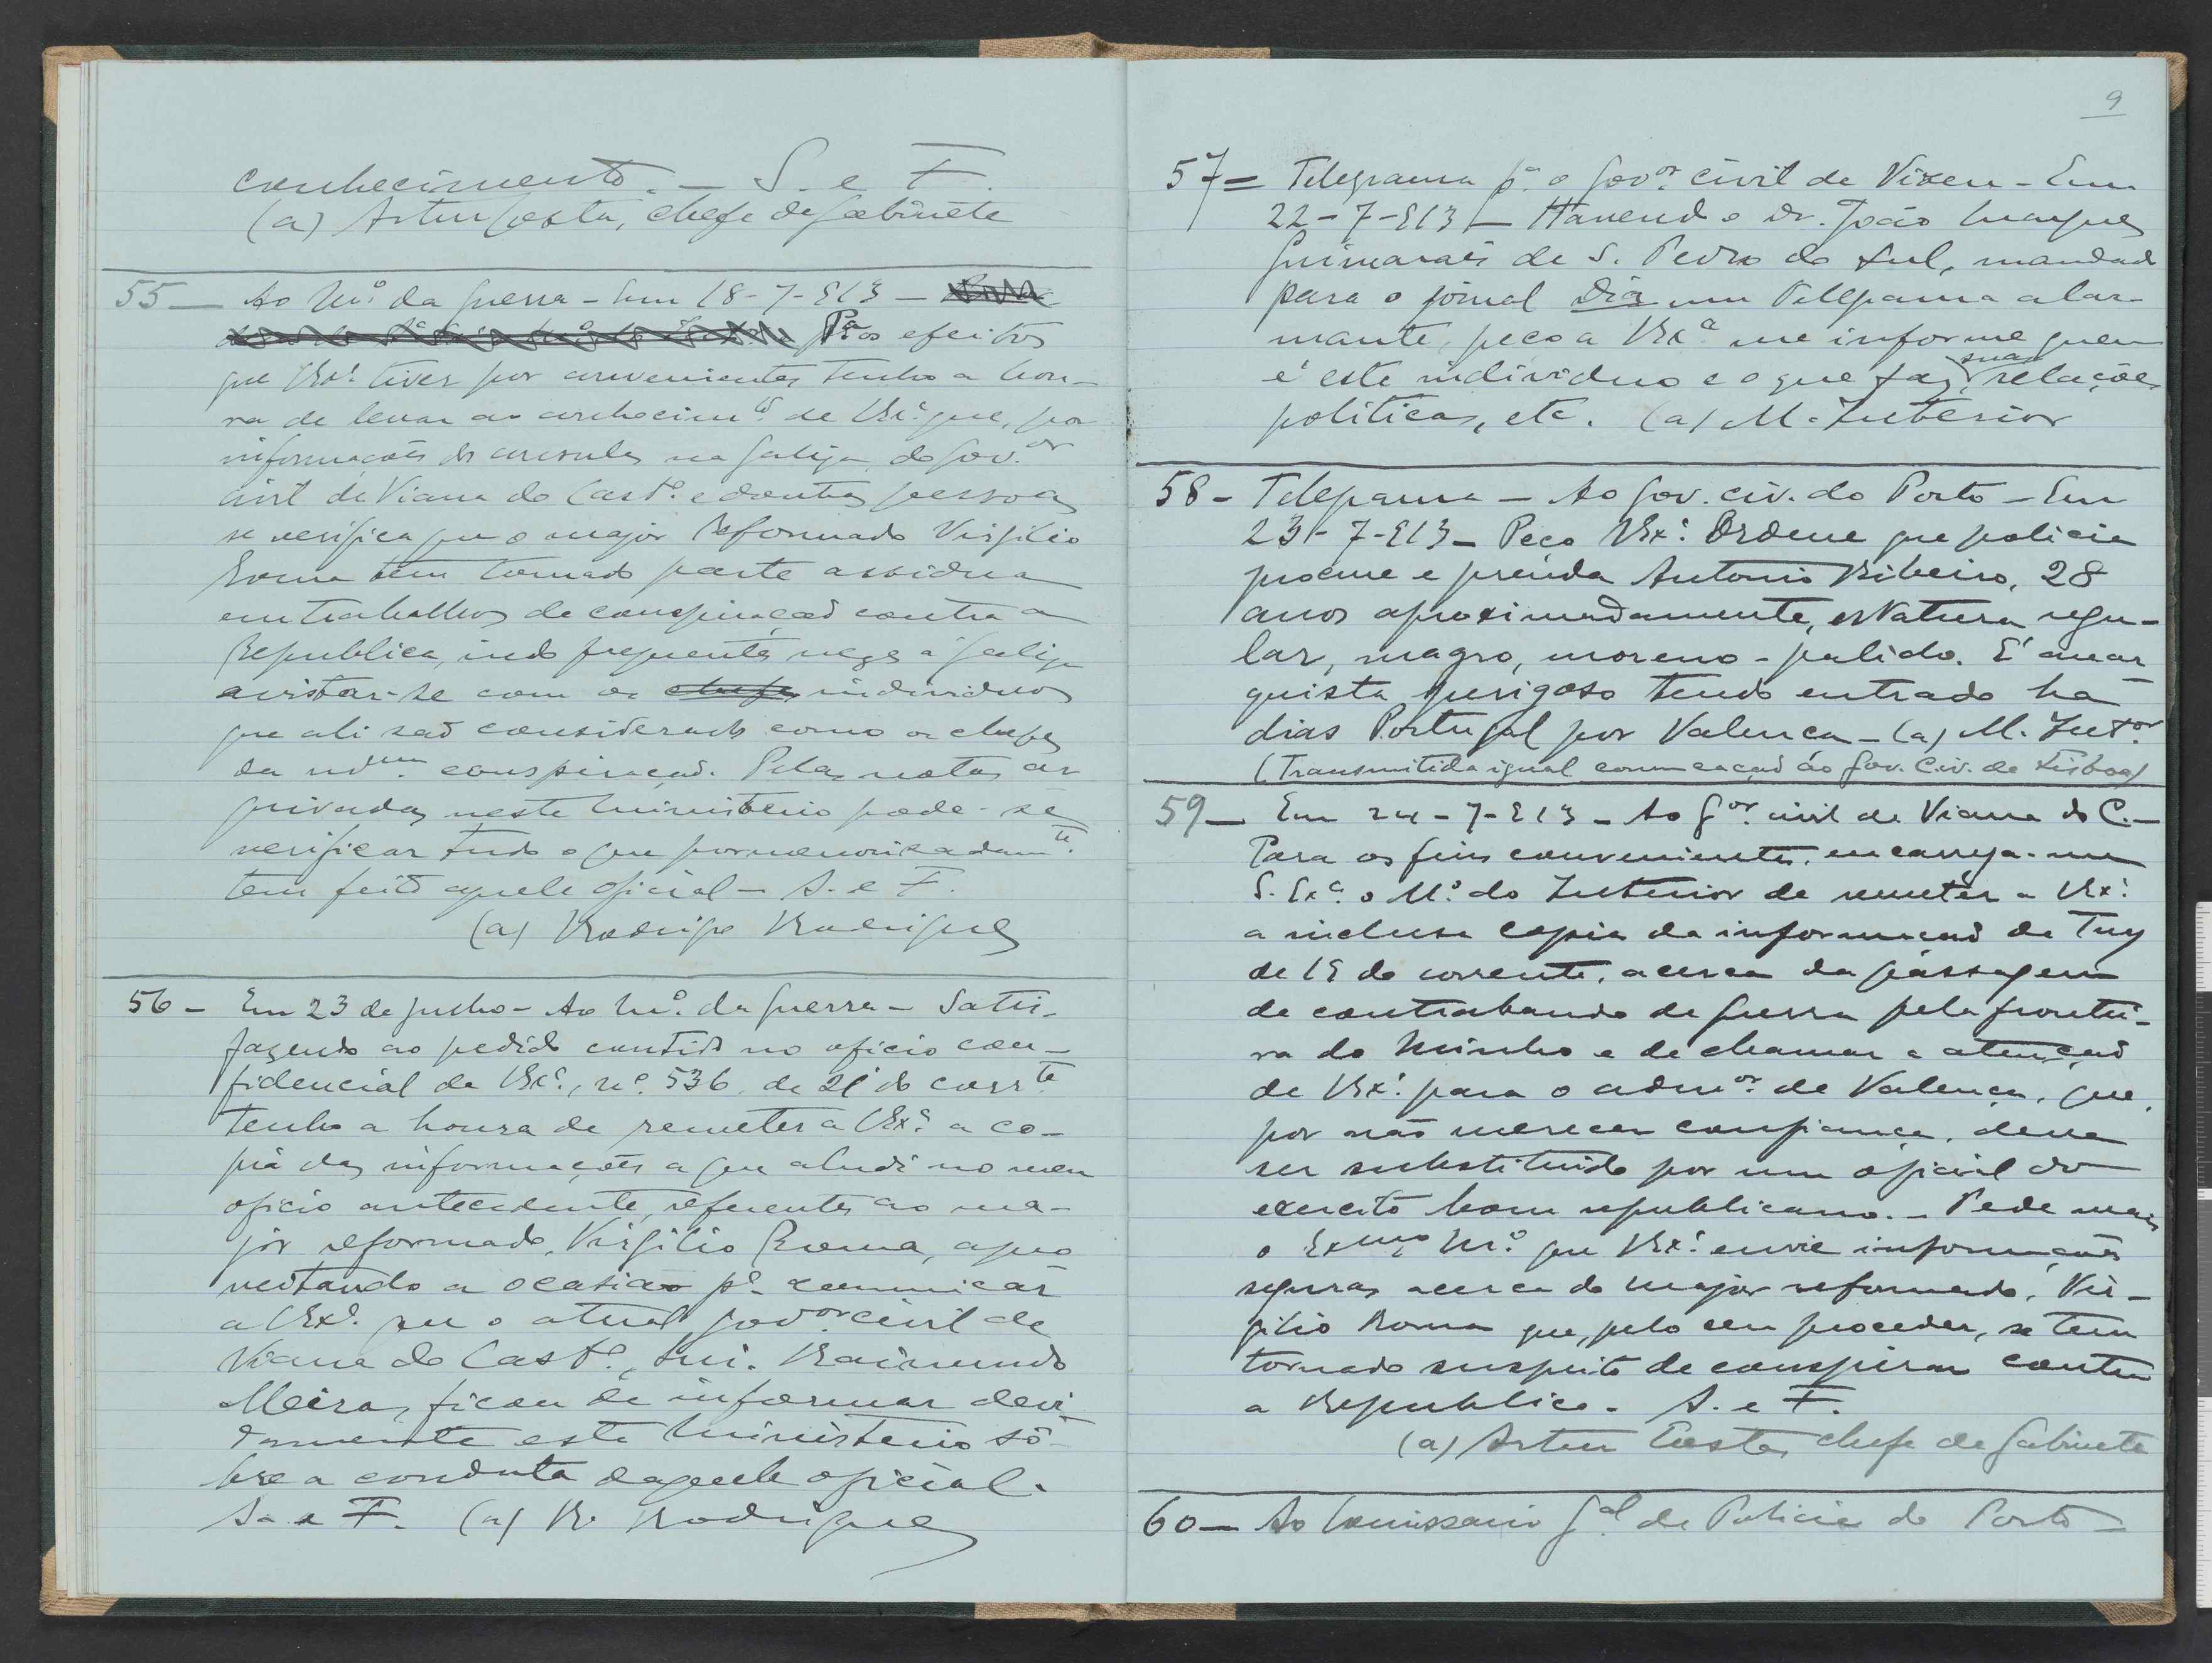 conhecimento. — S. e F.
(a) Artur Costa, chefe de gabinete
55 — Ao Mº. da Guerra - Em 18-7-913 —
Pª os efeitos
que VExª. tiver por convenientes tenho a hon-
ra de levar ao conhecimtº. de VExª. que, por
informações dos consules na Galiza, do Gov.or
civil de Viana do Castº. e doutras pessoas
se verifica que o major reformado Virgilio
Roma tem tomado parte assidua
em trabalhos de conspiração contra a
Republica, indo frequentes vezes á Galiza
avistar-se com os chefes individuos
que ali são considerados como os chefes
da mesma conspiração. Pelas notas ar-
quivadas neste Ministerio pode-se
verificar tudo o que pormenorisadamte.
tem feito aquele oficial - S. e F.
(a) Rodrigo Rodrigues
56 - Em 23 de julho - Ao Mº. da Guerra - Satis-
fazendo ao pedido contido no oficio con-
fidencial de VExª., nº. 536, de 21 do corrte.
tenho a honra de remeter a VExª. a co-
pia das informações a que aludi no meu
oficio antecedente, referentes ao ma-
jor reformado, Virgilio Roma, apro
veitando a ocasião pª. comunicar
a VExª. que o atual govor. civil de
Viana do Castº., snr. Raimundo
Meira, ficou de informar devi
damente este Ministerio sô-
bre a conduta daquele oficial.
S. e F. (a) R. Rodrigues
9
57 = Telegrama pª. o Govor. civil de Vizeu - Em
22-7-913 — Havendo o Dr. João Marques
Guimarães de S. Pedro do Sul, mandado
para o jornal Dia um telegrama alar-
mante, peço a VExª me informe quem
é este individuo e o que faz, suas relações
politicas, etc. (a) M. Interior
58 - Telegrama — Ao Gov. civ. do Porto - Em
23-7-913 - Peço VExª. Ordene que policia
procure e prenda Antonio Ribeiro, 28
anos aproximadamente, estatura regu-
lar, magro, moreno-palido. É anar
quista perigoso tendo entrado ha
dias Portugal por Valença - (a) M. Intor.
(Transmitida igual comunicação ao Gov. Civ. de Lisboa)
59 — Em 24-7-913 - Ao Gor. civil de Viana do C. —
Para os fins convenientes, encarrega-me
S. Exª. o Mº. do Interior de remeter a VExª.
a inclusa copia da informação de Tuy
de 19 do corrente, acerca da passagem
de contrabando de guerra pela frontei-
ra do Minho e de chamar a atenção
de VExª. para o admor. de Valença, que,
por não merecer confiança, deve
ser substituido por um oficial do
exercito bom republicano. - Pede mais
o Exmo. Mº. que VExª. envie informações
seguras acerca do major reformado, Vir-
gilio Roma que, pelo seu proceder, se tem
tornado suspeito de conspirar contra
a Republica. S. e F.
(a) Artur Costa, chefe de gabinete
60 — Ao Comissario Gal. de Policia do Porto —